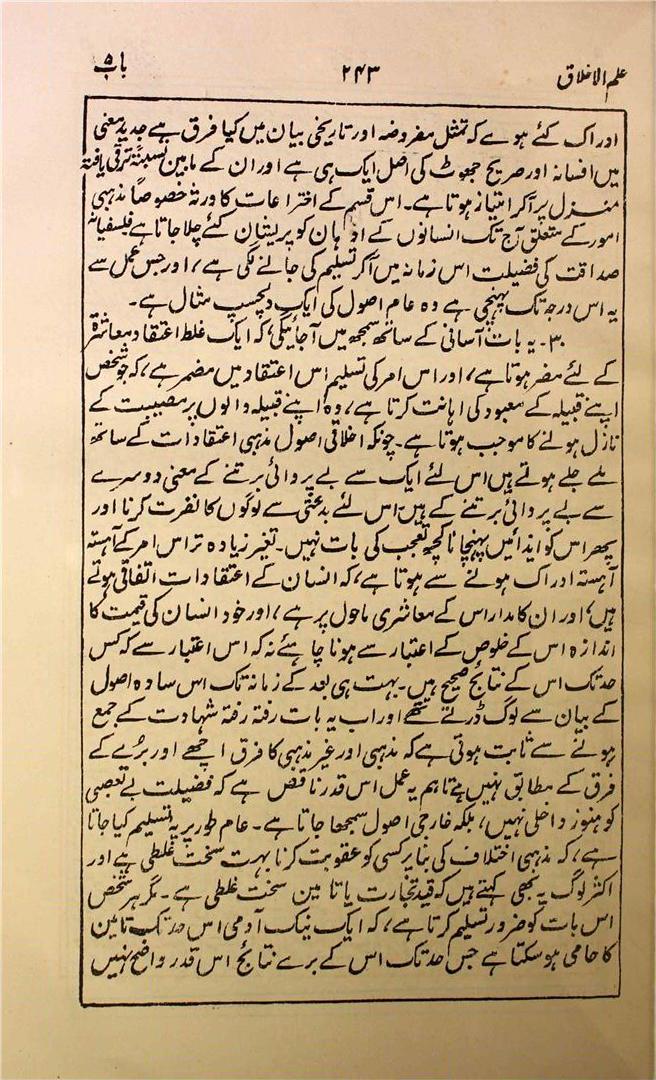 علم الاخلاق ۲۴۳ باب ۵
ادراک کئے ہوے کہ تمثل مفروضہ اور تاریخی بیان میں کیا فرق ہے جدید معنی
میں افسانہ اور صریح جھوٹ کی اصل ایک ہی ہے اور ان کے مابین نسبتہً ترقی یافتہ
منزل پر آکر امتیاز ہوتا ہے۔ اس قسم کے اختراعات کا ورثہ خصوصاً مذہبی
امور کے متعلق آج تک انسانوں کے اذہان کو پریشان کئے چلا جاتا ہے فلسفیانہ
صداقت کی فضیلت اس زمانہ میں آکر تسلیم کی جانے لگی ہے، اور جس عمل سے
یہ اس درجہ تک پہنچی ہے وہ عام اصول کی ایک دلچسپ مثال ہے۔
۳۔ یہ بات آسانی کے ساتھ سمجھ میں آجائیگی، کہ ایک غلط اعتقاد معاشرۃ
کے لئے مضر ہوتا ہے، اور اس امر کی تسلیم اس اعتقاد میں مضمر ہے، کہ جو شخص
اپنے قبیلہ کے معبود کی اہانت کرتا ہے، وہ اپنے قبیلہ والوں پر مصیبت کے
نازل ہونے کا موجب ہوتا ہے۔ چونکہ اخلاقی اصول مذہبی اعتقادات کے ساتھ
ملے جلے ہوتے ہیں اس لئے ایک سے بے پروائی برتنے کے معنی دوسرے
سے بے پروائی برتنے کے ہیں، اس لئے بدعتی سے لوگوں کا نفرت کرنا اور
پھر اس کو ایذائیں پہنچانا کچھ تعجب کی بات نہیں۔ تغیر زیادہ تر اس امر کے آہستہ
آہستہ ادراک ہونے سے ہوتا ہے، کہ انسان کے اعتقادات اتفاقی ہوتے
ہیں، اور ان کا مدار اس کے معاشری ماحول پر ہے، اور خود انسان کی قیمت کا
اندازہ اس کے خلوص کے اعتبار سے ہونا چاہئے نہ کہ اس اعتبار سے کہ کس
حد تک اس کے نتائج صحیح ہیں۔ بہت ہی بعد کے زمانہ تک اس سادہ اصول
کے بیان سے لوگ ڈرتے تھے اور اب یہ بات رفتہ رفتہ شہادت کے جمع
ہونے سے ثابت ہوتی ہے کہ مذہبی اور غیر مذہبی کا فرق اچھے اور بُرے کے
فرق کے مطابق نہیں ہے تاہم یہ عمل اس قدر ناقص ہے کہ فضیلت بے تعصبی
کو ہنوز داخلی نہیں، بلکہ خارجی اصول سمجھا جاتا ہے۔ عام طور پر یہ تسلیم کیا جاتا
ہے، کہ مذہبی اختلاف کی بنا پر کسی کو عقوبت کرنا بہت سخت غلطی ہے اور
اکثر لوگ یہ بھی کہتے ہیں کہ قید تجارت یا تامین سخت غلطی ہے۔ مگر ہر شخص
اس بات کو ضرور تسلیم کرتا ہے، کہ ایک نیک آدمی اس حد تک تامین
کا حامی ہوسکتا ہے جس حد تک اس کے برے نتائج اس قدر واضح نہیں